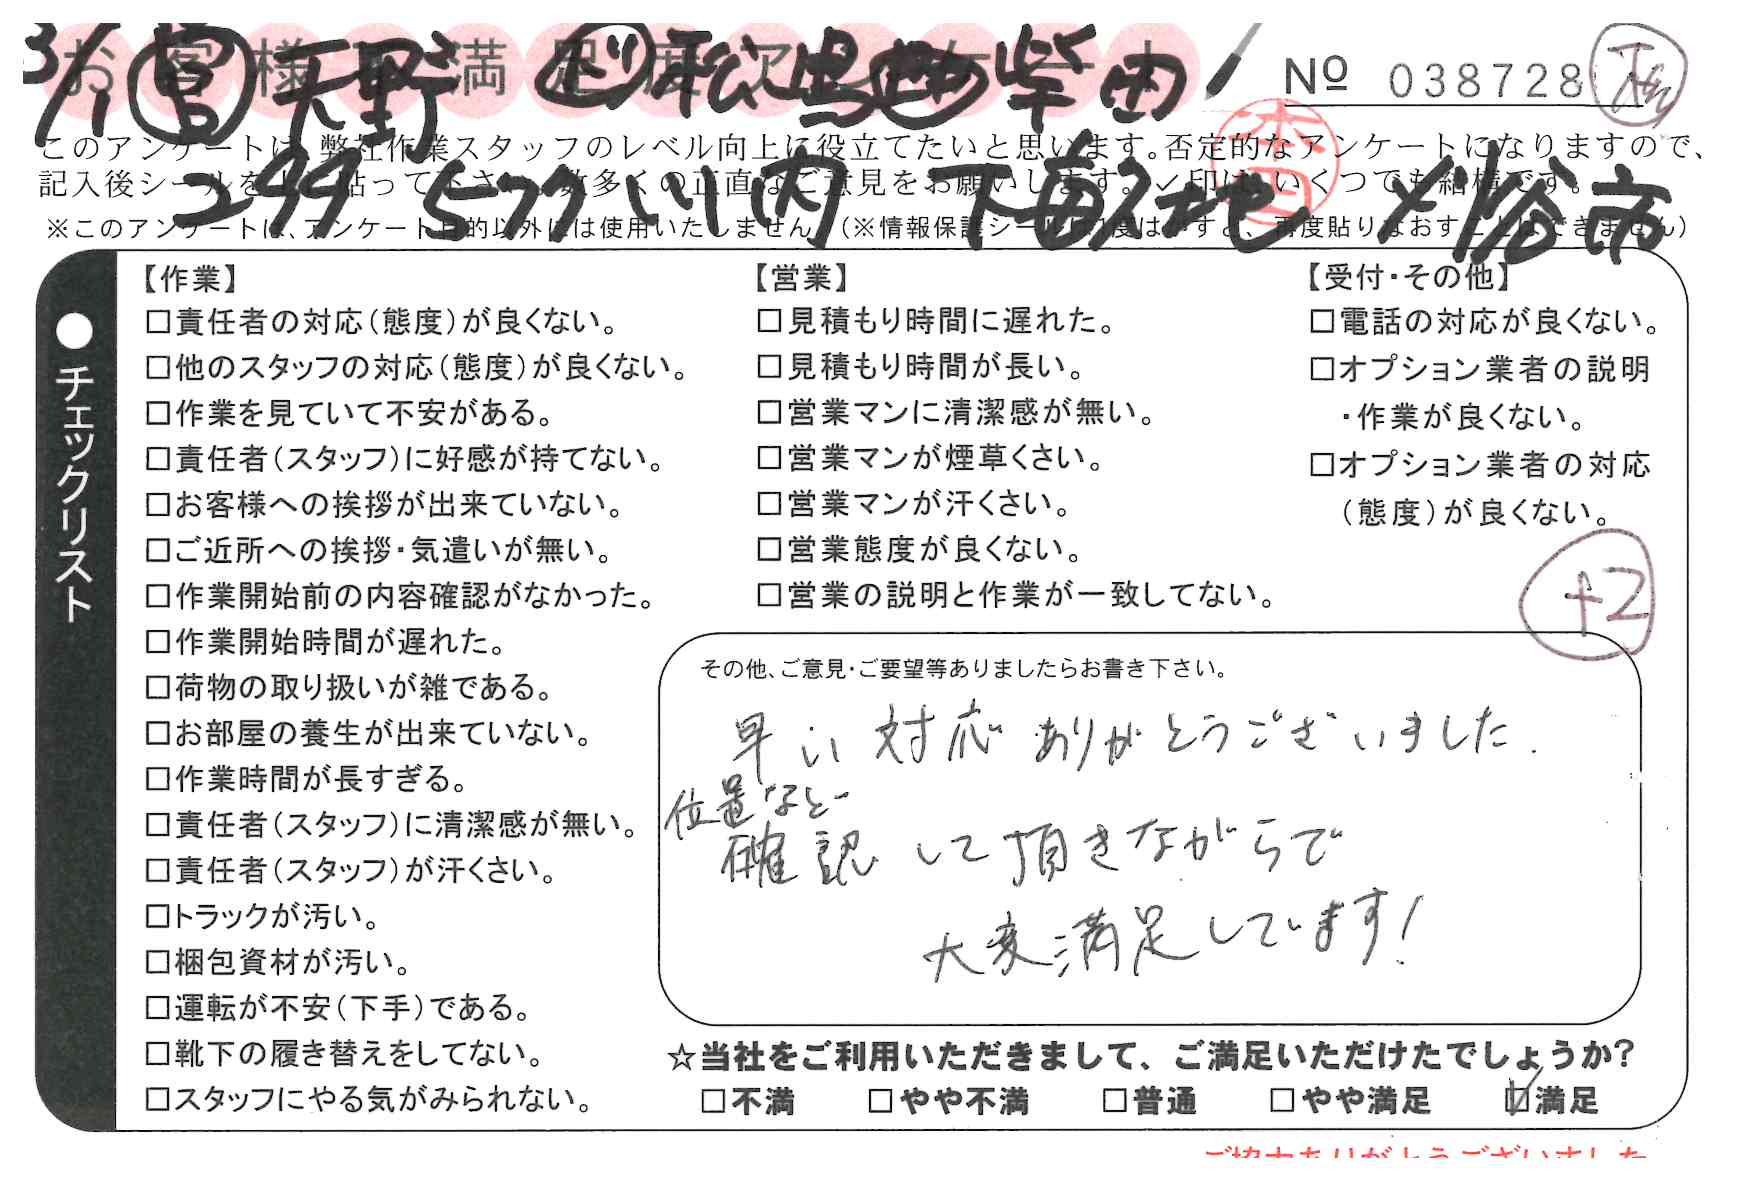 お客様ご満足度アンケート
3/1 営 天野 作 松嶋 柴田
Nº 038728
このアンケートは、弊社作業スタッフのレベル向上に役立てたいと思います。否定的なアンケートになりますので、
記入後シールを上に貼って下さい。数多くの正直なご意見をお願いします。✓印は、いくつでも結構です。
※このアンケートは、アンケート目的以外には使用いたしません。(※情報保護シールは1度はがすと、再度貼りなおすことはできません)
●チェックリスト
【作業】
□責任者の対応(態度)が良くない。
□他のスタッフの対応(態度)が良くない。
□作業を見ていて不安がある。
□責任者(スタッフ)に好感が持てない。
□お客様への挨拶が出来ていない。
□ご近所への挨拶・気遣いが無い。
□作業開始前の内容確認がなかった。
□作業開始時間が遅れた。
□荷物の取り扱いが雑である。
□お部屋の養生が出来ていない。
□作業時間が長すぎる。
□責任者(スタッフ)に清潔感が無い。
□責任者(スタッフ)が汗くさい。
□トラックが汚い。
□梱包資材が汚い。
□運転が不安(下手)である。
□靴下の履き替えをしてない。
□スタッフにやる気がみられない。
【営業】
□見積もり時間に遅れた。
□見積もり時間が長い。
□営業マンに清潔感が無い。
□営業マンが煙草くさい。
□営業マンが汗くさい。
□営業態度が良くない。
□営業の説明と作業が一致してない。
【受付・その他】
□電話の対応が良くない。
□オプション業者の説明
・作業が良くない。
□オプション業者の対応
(態度)が良くない。
+2
その他、ご意見・ご要望等ありましたらお書き下さい。
早い対応ありがとうございました.
位置など
確認して頂きながらで
大変満足しています!
☆当社をご利用いただきまして、ご満足いただけたでしょうか?
□不満 □やや不満 □普通 □やや満足 ☑満足
ご協力ありがとうございました